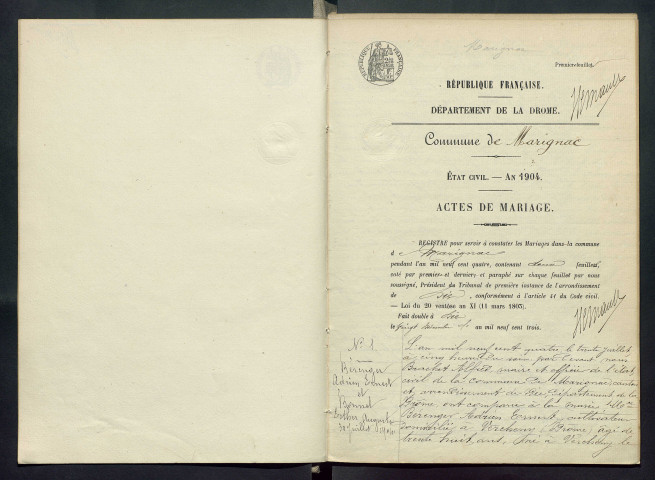 Marignac
Premier feuillet
RÉPUBLIQUE FRANÇAISE.
DÉPARTEMENT DE LA DROME.
Commune de Marignac
ÉTAT CIVIL. — AN 1904.
ACTES DE MARIAGE.
REGISTRE pour servir à constater les Mariages dans la commune
de Marignac
pendant l'an mil neuf cent quatre, contenant deux feuillets,
coté par premier et dernier et paraphé sur chaque feuillet par nous
soussigné, Président du Tribunal de première instance de l'arrondissement
de Die, conformément à l'article 41 du Code civil.
— Loi du 20 ventôse an XI (11 mars 1803).
Fait double à Die
le vingt au mil neuf cent trois.
N° 1
Bérenger
Adrien Ernest
et
Bonnet
Augusta
30 juillet 1904
L'an mil neuf cent quatre le trente juillet
à cinq heures du soir par devant nous
Brochet Alfred, maire et officier de l'état
civil de la commune de Marignac canton
et arrondissement de Die, département de la
Drôme ont comparu à la mairie
Bérenger Adrien Ernest, cultivateur
domicilié à Vercheny (Drôme) âgé de
trente huit ans, né à Vercheny le